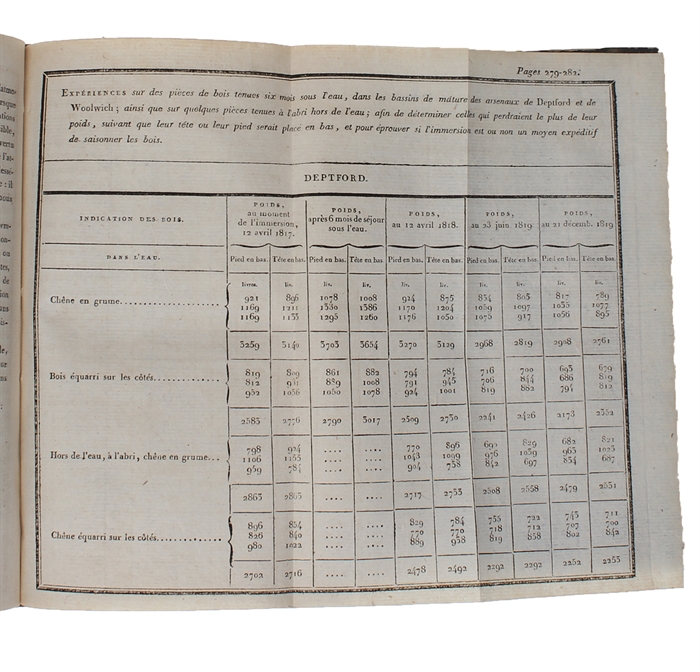 Pages 279-282.
EXPÉRIENCES sur des pièces de bois tenues six mois sous l'eau, dans les bassins de mâture des arsenaux de Deptford et de
Woolwich; ainsi que sur quelques pièces tenues à l'abri hors de l'eau; afin de déterminer celles qui perdraient le plus de leur
poids, suivant que leur tête ou leur pied serait placé en bas, et pour éprouver si l'immersion est ou non un moyen expéditif
de saisonner les bois.
DEPTFORD.
INDICATION DES BOIS.
POIDS, au moment de l'immersion, 12 avril 1817.
POIDS, après 6 mois de séjour sous l'eau.
POIDS, au 12 avril 1818.
POIDS, au 23 juin. 1819
POIDS, au 21 décemb. 1819
DANS L'EAU. Pied en bas. Tête en bas. Pied en bas. Tête en bas. Pied en bas. Tête en bas. Pied en bas. Tête en bas. Pied en bas. Tête en bas.
livres. liv. liv. liv. liv. liv. liv. liv. liv. liv.
Chêne en grume
921 896 1078 1008 924 875 834 803 817 789
1169 1211 1330 1386 1170 1204 1059 1097 1035 1077
1169 1133 1295 1260 1176 1050 1075 917 1056 895
3259 3140 3703 3654 3270 3129 2968 2819 2908 2761
Bois équarri sur les côtés
819 809 861 882 794 784 716 700 693 679
812 931 889 1008 791 945 706 844 686 819
952 1036 1050 1078 924 1001 819 882 794 812
2583 2776 2790 3017 2509 2730 2241 2426 2173
Hors de l'eau, à l'abri, chêne en grume
798 924 .... .... 770 896 690 829 682 821
1106 1155 .... .... 1043 1099 976 1039 963 1023
959 784 .... .... 904 738 842 697 834 687
2863 2863 .... .... 2717 2733 2508 2558 2479 2531
Chêne équarri sur les côtés
896 854 .... .... 829 784 755 722 743 711
826 840 .... .... 770 770 718 712 707 700
980 1022 .... .... 889 938 819 858 802 842
2702 2716 .... .... 2478 2492 2292 2292 2252 2253